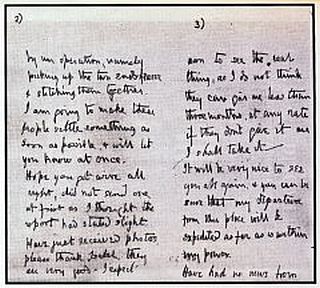 2)
by an operation, namely
picking up the two ends
& stitching them together.
I am going to make these
people settle something as
soon as possible & will let
you know at once.
Hope you got wire all
right, did not send one
at first as I thought the
report had stated slight.
Have just received photos
please thank they
are very good. I expect
3)
soon to see the real
thing, as I do not think
they can give me less than
three months, at any rate
if they don't give it me
I shall take it
It will be very nice to see
you all again, & you can be
sure that my departure
from this place will be
expedited as far as is within
my power.
Have had no news from